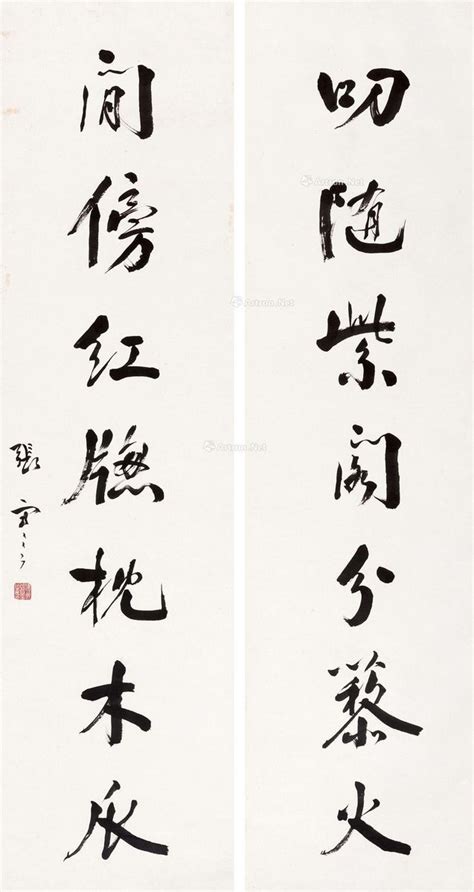 叨随紫閣分藜火
閒傍紅牕枕木瓜
張
Artron.Net
Artron.Net
Artron.Net